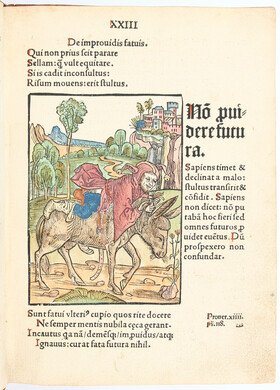 XXIII
De improuidis fatuis.
Qui non prius scit parare
Sellam: q̃ vult equitare.
Si is cadit inconsultus:
Risum mouens: erit stultus.
Nō ꝓui-
dere futu
ra.
Sapiens timet &
declinat a malo:
stultus transirit &
cōfidit. Sapiens
non dicet: nō pu
tabā hoc fieri sed
omnes futuros ꝓ
uidet euētus. Dū
prospexero non
confundar.
Sunt fatui vlteriꝰ cupio quos rite docere
Ne semper mentis nubila cęca gerant.
Incautus qa nā/ demēsqꝫ/im̄puidus/atqꝫ
Ignauus: curat fata futura nihil.
Prouer.xiiii.
ps̄. 118.